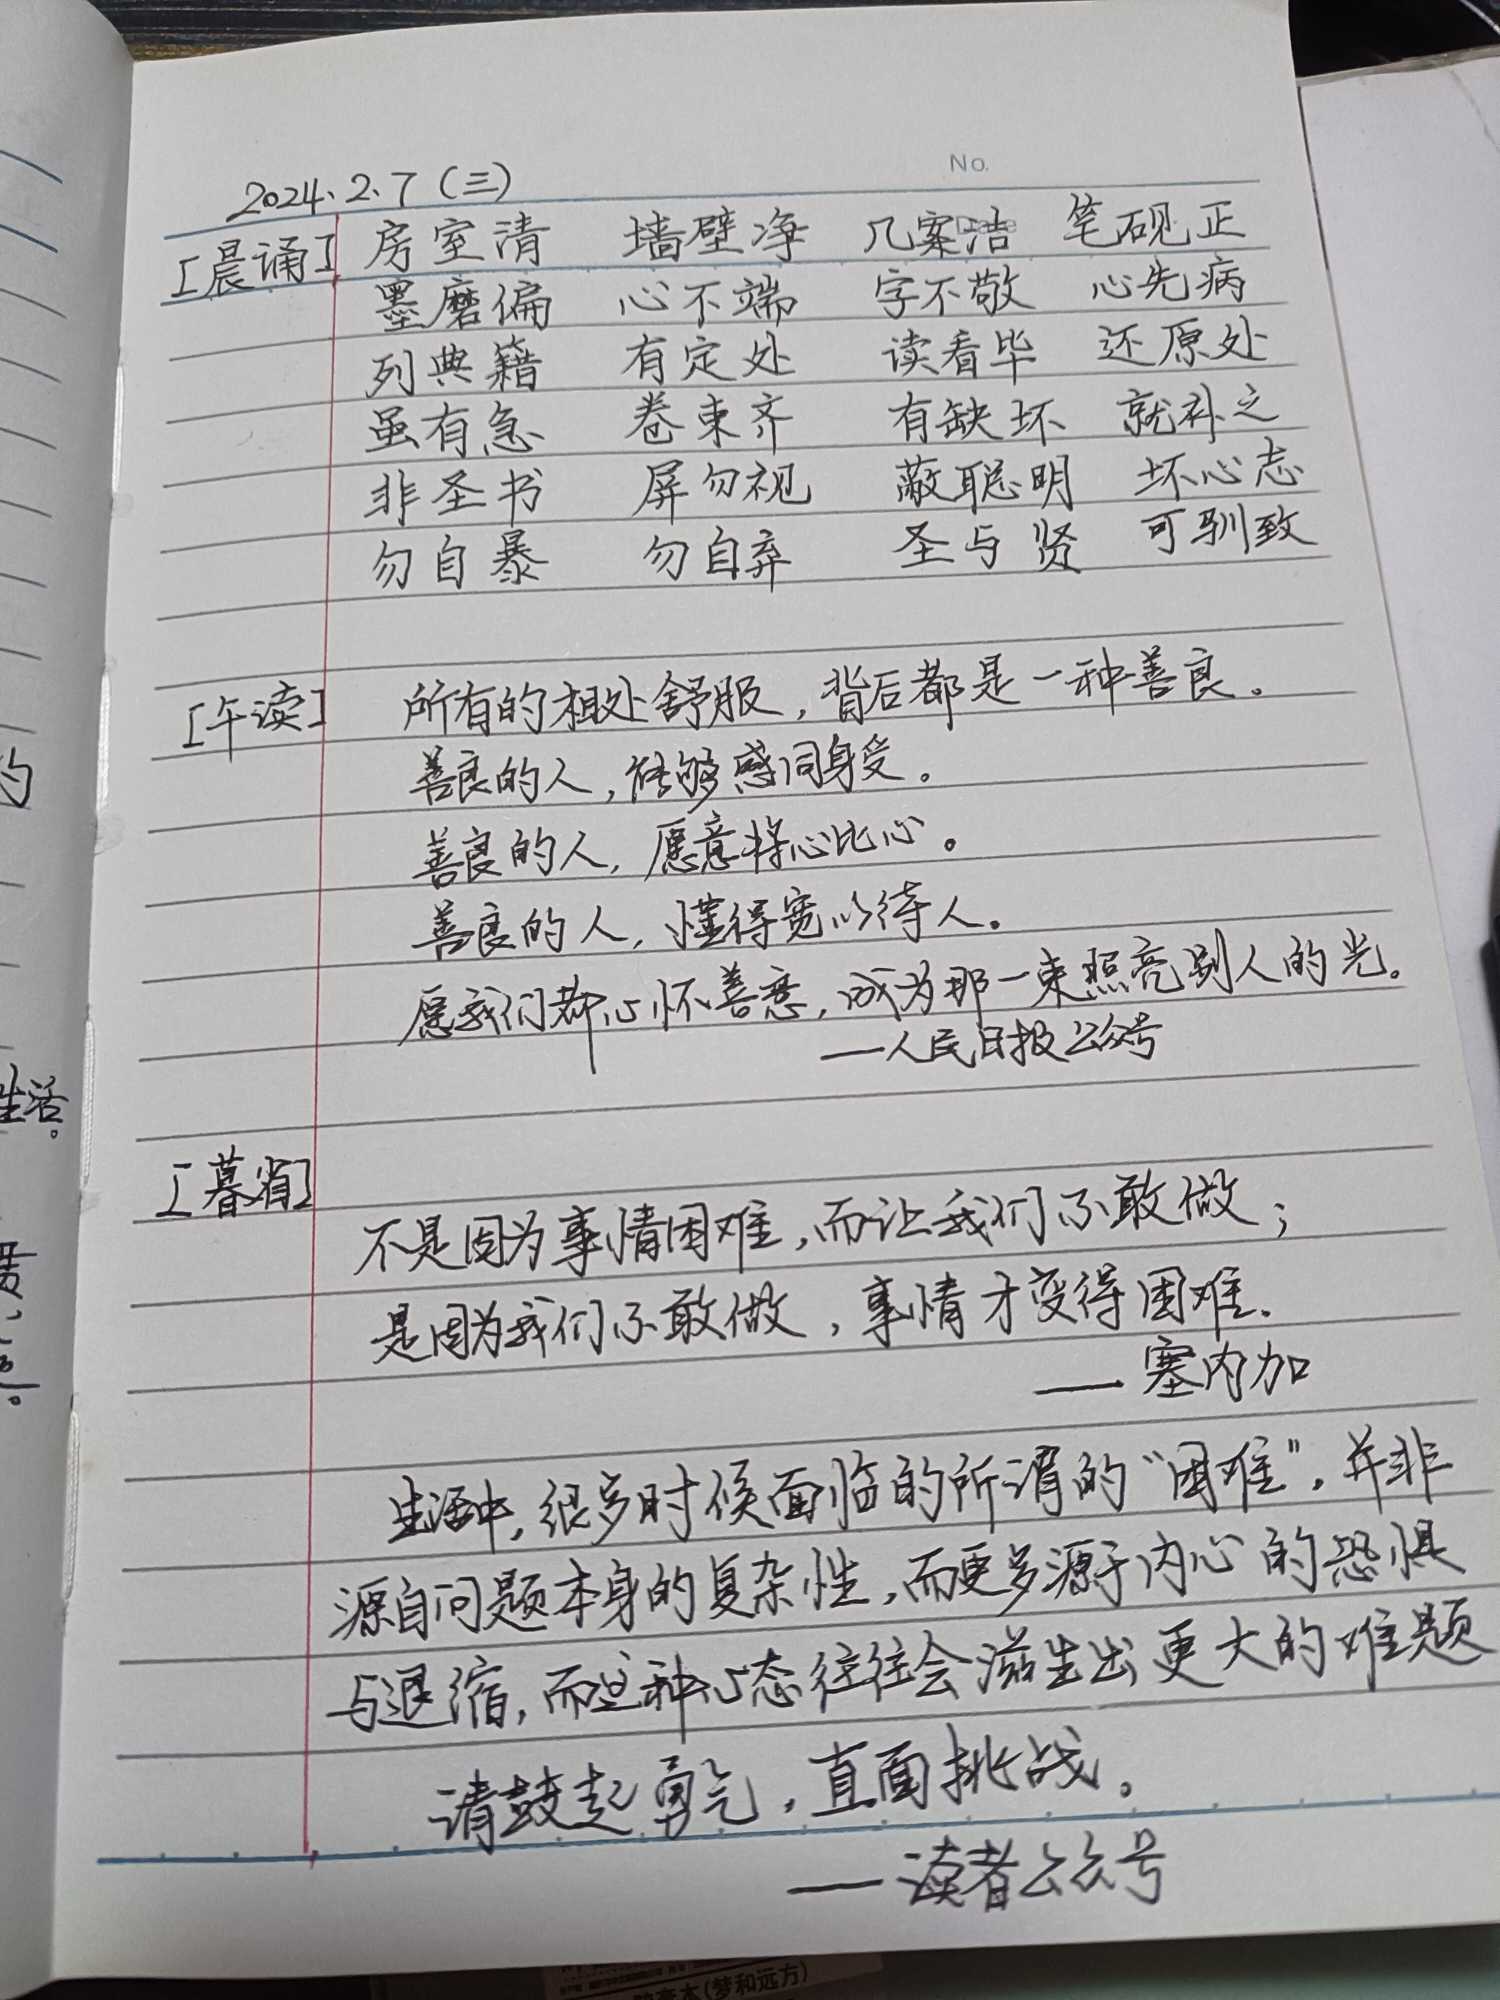 No.
2024.2.7（三）
[晨诵] 房室清 墙壁净 几案洁 笔砚正
墨磨偏 心不端 字不敬 心先病
列典籍 有定处 读看毕 还原处
虽有急 卷束齐 有缺坏 就补之
非圣书 屏勿视 蔽聪明 坏心志
勿自暴 勿自弃 圣与贤 可驯致
[午读] 所有的相处舒服，背后都是一种善良。
善良的人，能够感同身受。
善良的人，愿意将心比心。
善良的人，懂得宽以待人。
愿我们都心怀善意，成为那一束照亮别人的光。
——人民日报公众号
[暮省]
不是因为事情困难，而让我们不敢做；
是因为我们不敢做，事情才变得困难。
——塞内加
生活中，很多时候面临的所谓的“困难”，并非
源自问题本身的复杂性，而更多源于内心的恐惧
与退缩，而这种心态往往会滋生出更大的难题
请鼓起勇气，直面挑战。
——读者公众号
的
生活。
(梦和远方)